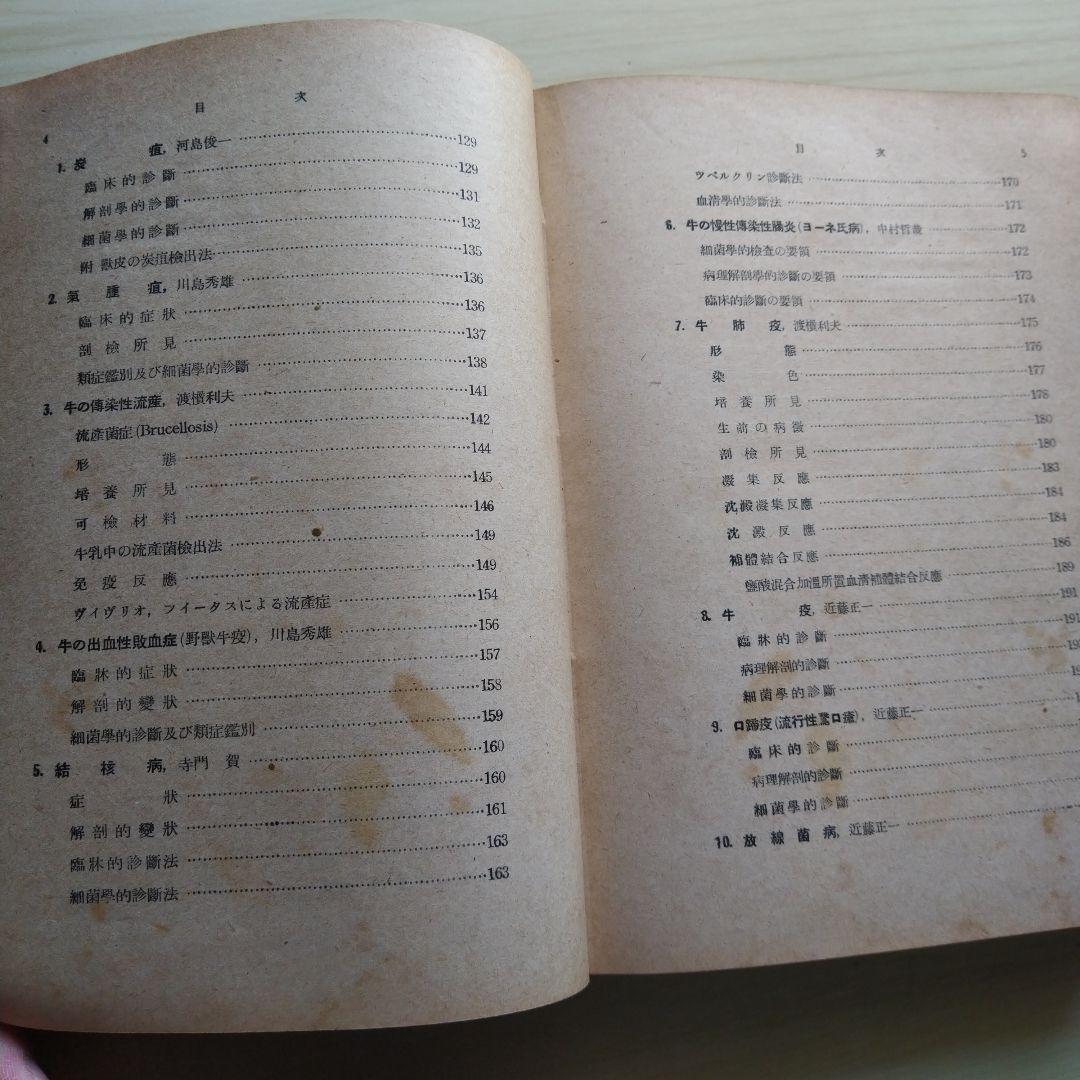 目 次
4
1. 炭 疽, 河島俊一 129
臨床的診斷 129
解剖學的診斷 131
細菌學的診斷 132
附 獸皮の炭疽檢出法 135
2. 氣腫疽, 川島秀雄 136
臨床的症狀 136
剖檢所見 137
類症鑑別及び細菌學的診斷 138
3. 牛の傳染性流産, 渡櫃利夫 141
流產菌症(Brucellosis) 142
形 態 144
培養所見 145
可檢材料 146
牛乳中の流產菌檢出法 149
免疫反應 149
ヴィヴリオ, フイータスによる流產症 154
4. 牛の出血性敗血症(野獸牛疫), 川島秀雄 156
臨牀的症狀 157
解剖的變狀 158
細菌學的診斷及び類症鑑別 159
5. 結核病, 寺門 賀 160
症 狀 160
解剖的變狀 161
臨牀的診斷法 163
細菌學的診斷法 163
目 次 5
ツベルクリン診斷法 170
血清學的診斷法 171
6. 牛の慢性傳染性腸炎(ヨーネ氏病), 中村哲哉 172
細菌學的檢查の要領 172
病理解剖學的診斷の要領 173
臨床的診斷の要領 174
7. 牛肺疫, 渡櫃利夫 175
形 態 176
染 色 177
培養所見 178
生前の病徵 180
剖檢所見 180
凝集反應 183
沈澱凝集反應 184
沈澱反應 184
補體結合反應 186
鹽酸混合加溫所置血清補體結合反應 189
8. 牛 疫, 近藤正一 191
臨牀的診斷 191
病理解剖的診斷
細菌學的診斷
9. 口蹄疫(流行性鵞口瘡), 近藤正一
臨床的診斷
病理解剖的診斷
細菌學的診斷
10. 放線菌病, 近藤正一